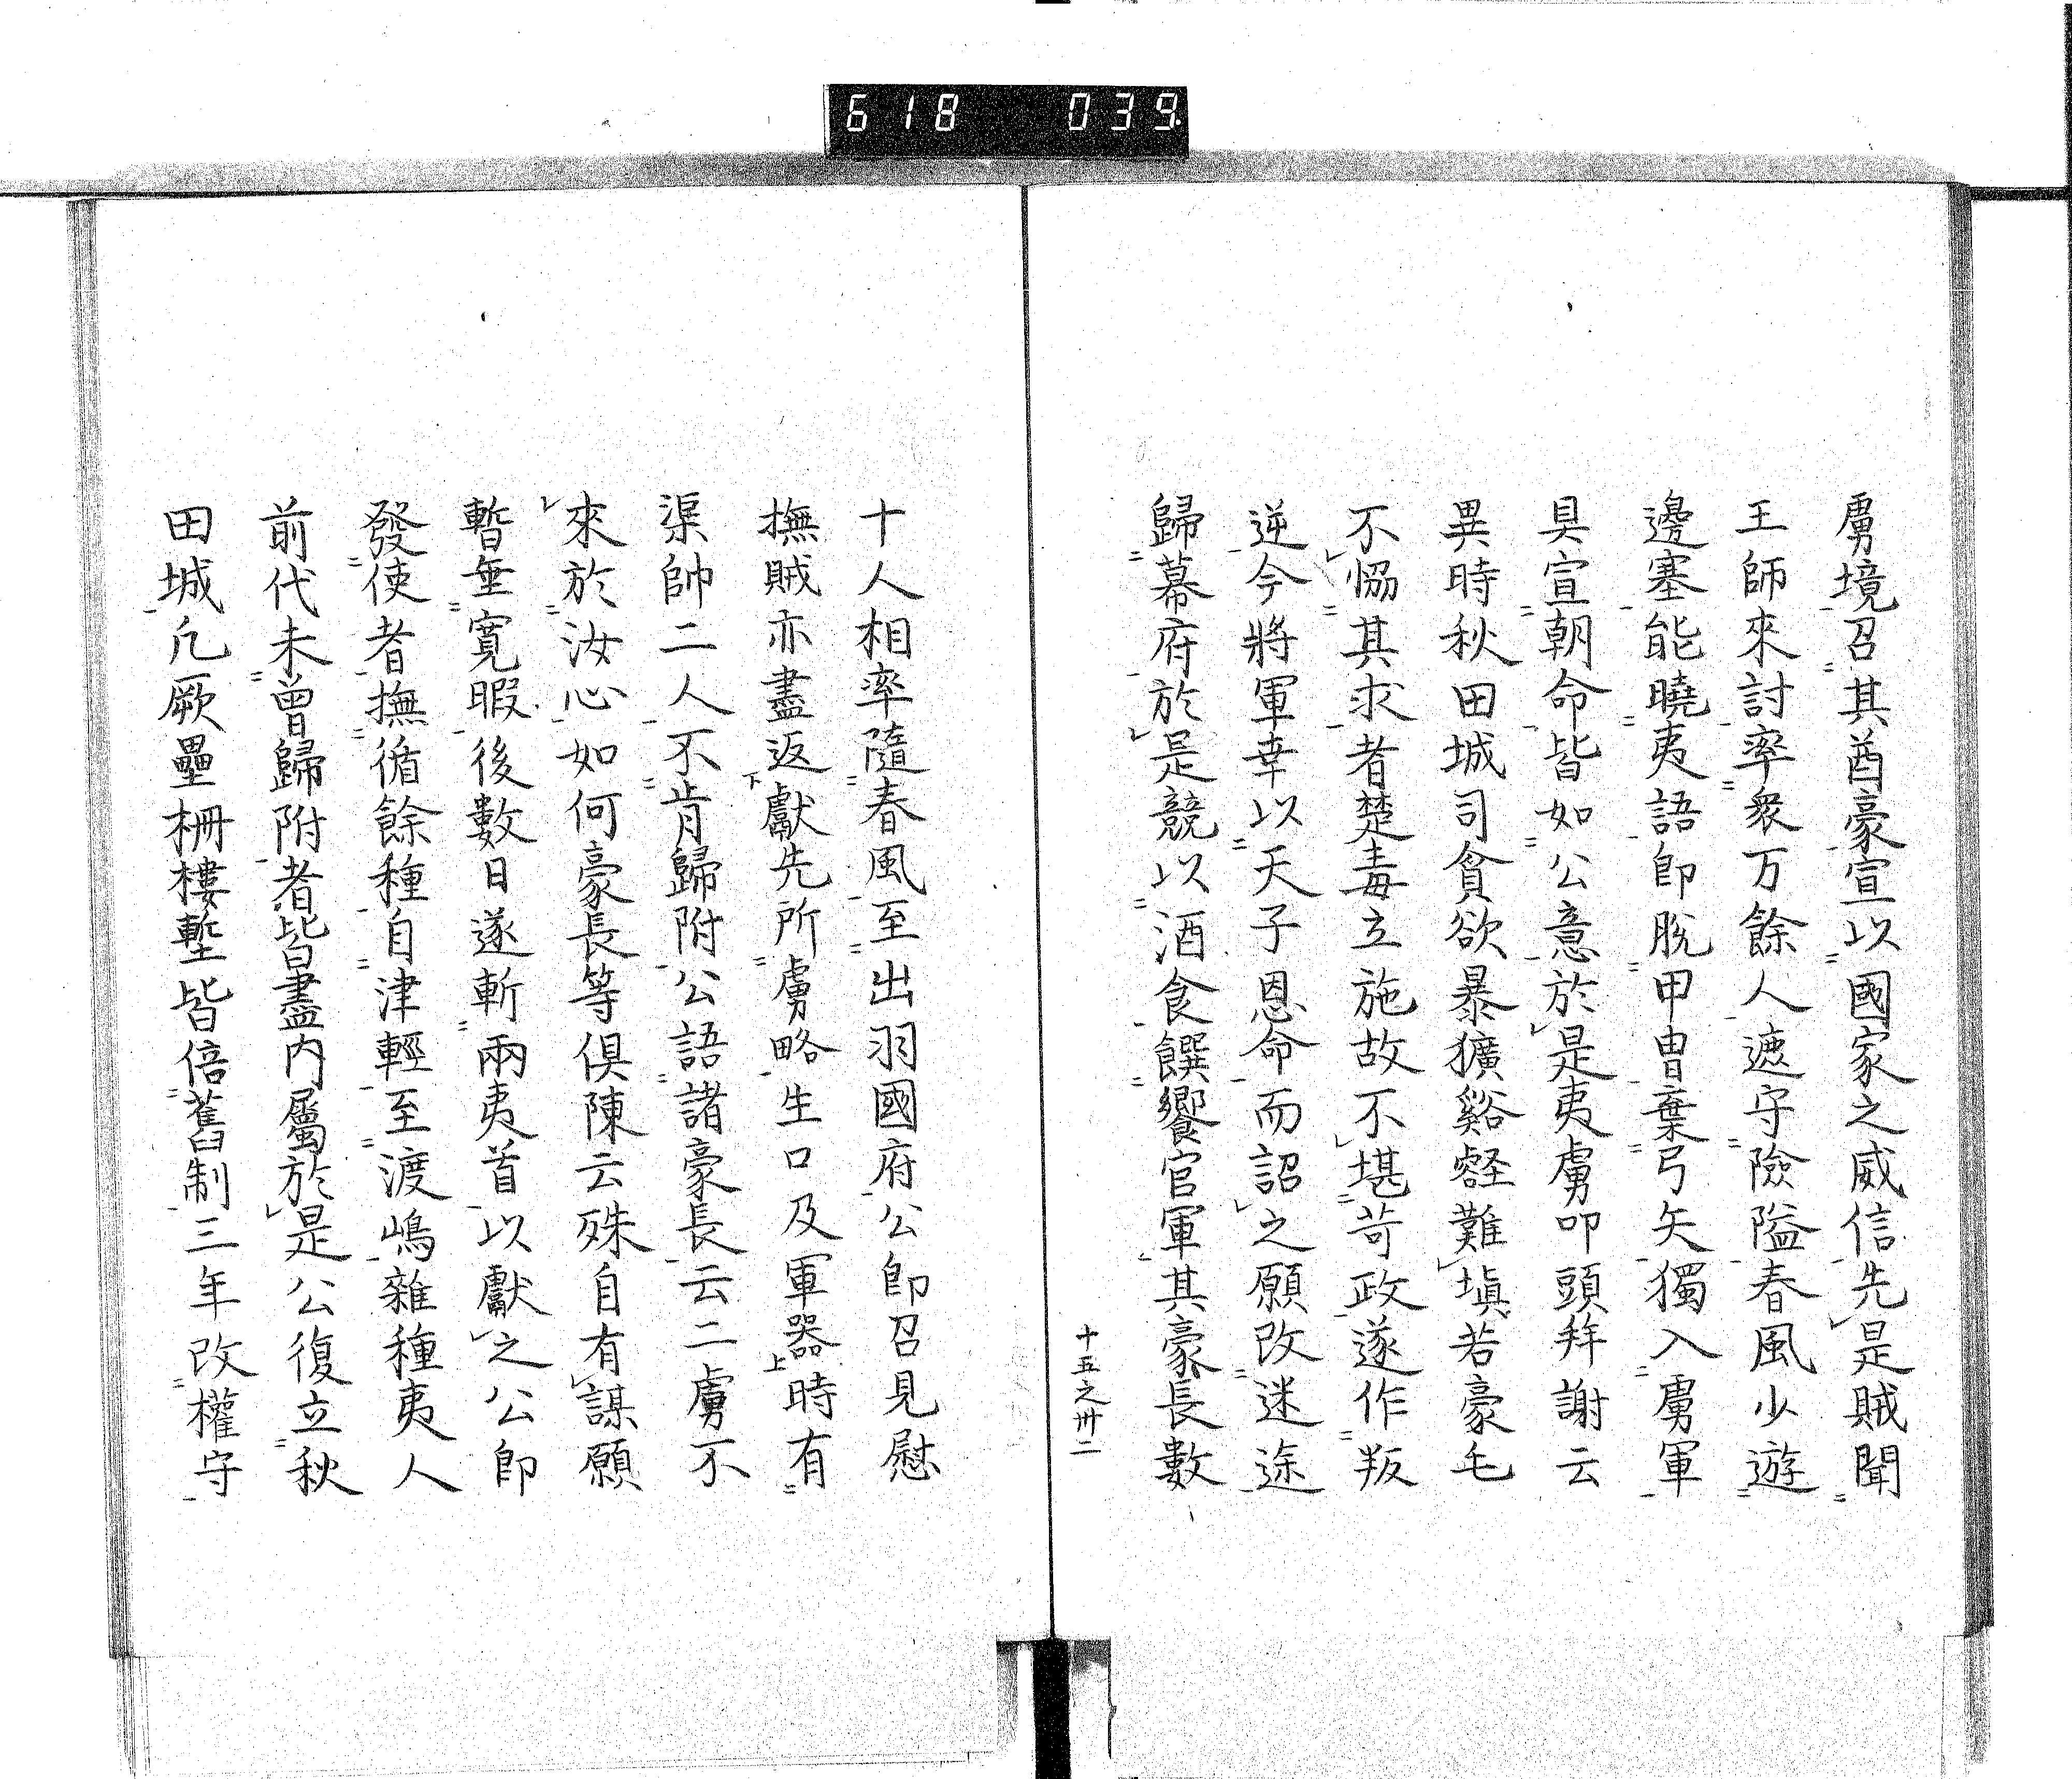 618 039
虜境召其酋豪宣以國家之威信先是賊聞
王師來討率衆万餘人遮守險隘春風少遊
邊塞能曉夷語即脫甲冑棄弓矢獨入虜軍
具宣朝命皆如公意於是夷虜叩頭拜謝云
異時秋田城司貪欲暴獷谿壑難塡若豪毛
不恊其求者楚毒立施故不堪苛政遂作叛
逆今將軍幸以天子恩命而詔之願改迷途
歸幕府於是競以酒食饌饗官軍其豪長數
十五之卅二
十人相率隨春風至出羽國府公即召見慰
撫賊亦盡返獻先所虜略生口及軍器時有
下 上
渠帥二人不肯歸附公語諸豪長云二虜不
來於汝心如何豪長等俱陳云殊自有謀願
暫垂寬暇後數日遂斬兩夷首以獻之公即
發使者撫循餘種自津輕至渡嶋雜種夷人
前代未曾歸附者皆盡內屬於是公復立秋
田城凢厥壘柵樓塹皆倍舊制三年改權守